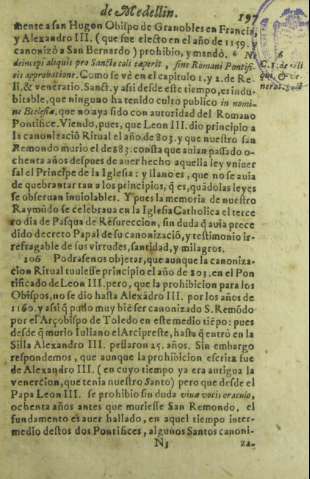 de Medellin. 197
mente a san Hugon Obispo de Granobles en Francia,
y Alexandro III. (que fue electo en el año de 1159. y
canonizò a San Bernardo) prohibio, y mandò. 6 Ne
deincepi aliquis pro Sancto coli caperit, sine Romani Pontifi-
cis approbatione. Como se vè en el capitulo 1. y 2. de Re
li. & veneratio. Sanct. y assi desde este tiempo, es indu-
bitable, que ninguno ha tenido culto publico in nomi-
ne Ecclesiæ, que no aya sido con autoridad del Romano
Pontifice. Viendo, pues, que Leon III. dio principio a
la canonizaciõ Ritual el año de 803. y que nuestro san
Remondo murio el de 883. consta que auian passado o-
chenta años despues de auer hecho aquella ley vniuer
sal el Principe de la Iglesia: y llano es, que no se auia
de quebrantar tan a los principios, q̃ es, quãdo las leyes
se obseruan inuiolables. Y pues la memoria de nuestro
Raymũdo se celebraua en la Iglesia Catholica el terce
ro dia de Pasqua de Resureccion, sin duda q̃ auia prece
dido decreto Papal de su canonizaciõ, y testimonio ir-
refragable de sus virtudes, santidad, y milagros.
106 Podrase nos objetar, que aunque la canoniza-
cion Ritual tuuiesse principio el año de 803. en el Pon
tificado de Leon III. pero, que la prohibicion para los
Obispos, no se dio hasta Alexãdro III. por los años de
1160. y assi q̃ pudo muy biẽ ser canonizado S. Remõdo
por el Arçobispo de Toledo en este medio tiẽpo: pues
desde q̃ murio Iuliano el Arcipreste, hasta q̃ entrò en la
Silla Alexandro III. passaron 25. años. Sin embargo
respondemos, que aunque la prohibicion escrita fue
de Alexandro III. (en cuyo tiempo ya era antigua la
venercion, que tenia nuestro Santo) pero que desde el
Papa Leon III. se prohibio sin duda viuæ vocis oraculo,
ochenta años antes que muriesse San Remondo, el
fundamento es auer hallado, en aquel tiempo inter-
medio destos dos Pontifices, algunos Santos canoni-
N5 za-
6